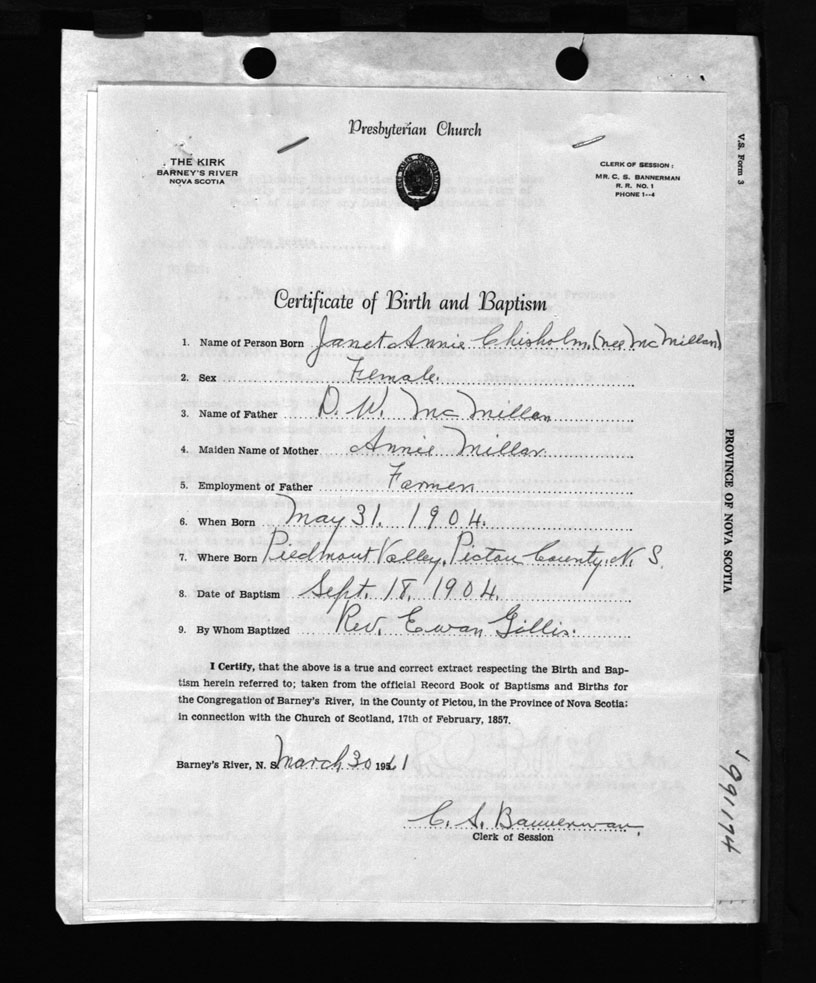 Presbyterian Church
THE KIRK
BARNEY'S RIVER
NOVA SCOTIA
CLERK OF SESSION:
MR. C. S. BANNERMAN
R. R. NO. 1
PHONE 1--4
V.S. Form 3
Certificate of Birth and Baptism
1. Name of Person Born Janet Annie Chisholm, (nee McMillan)
2. Sex Female.
3. Name of Father D. W. McMillan
4. Maiden Name of Mother Annie Millar
5. Employment of Father Farmer
6. When Born May 31. 1904.
7. Where Born Piedmont Valley, Pictou County, N. S.
8. Date of Baptism Sept. 18, 1904.
9. By Whom Baptized Rev. Ewan Gillis.
I Certify, that the above is a true and correct extract respecting the Birth and Bap-
tism herein referred to; taken from the official Record Book of Baptisms and Births for
the Congregation of Barney's River, in the County of Pictou, in the Province of Nova Scotia;
in connection with the Church of Scotland, 17th of February, 1857.
Barney's River, N. S. March 30 1961
C. S. Bannerman,
Clerk of Session
PROVINCE OF NOVA SCOTIA